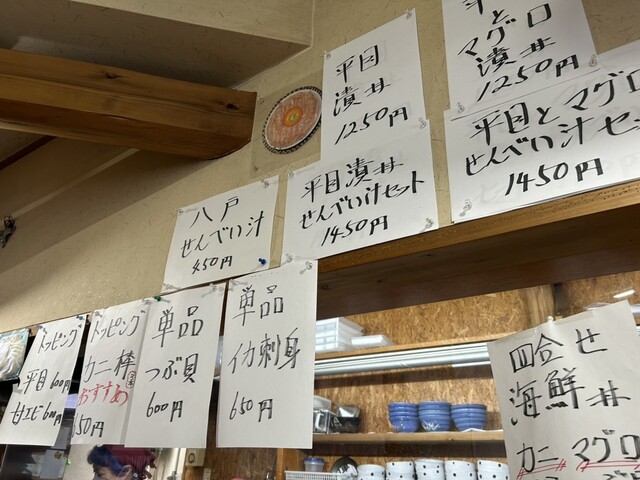 平目
漬丼
1250円
マグロ
漬丼
1250円
平目漬丼
せんべい汁セット
1450円
平目とマグロ
せんべい汁セ
1450円
八戸
せんべい汁
450円
トッピング
平目 600円
甘エビ 600円
トッピング
カニ棒
おすすめ
50円
単品
つぶ貝
600円
単品
イカ刺身
650円
四合せ
海鮮丼
カニ マグロ